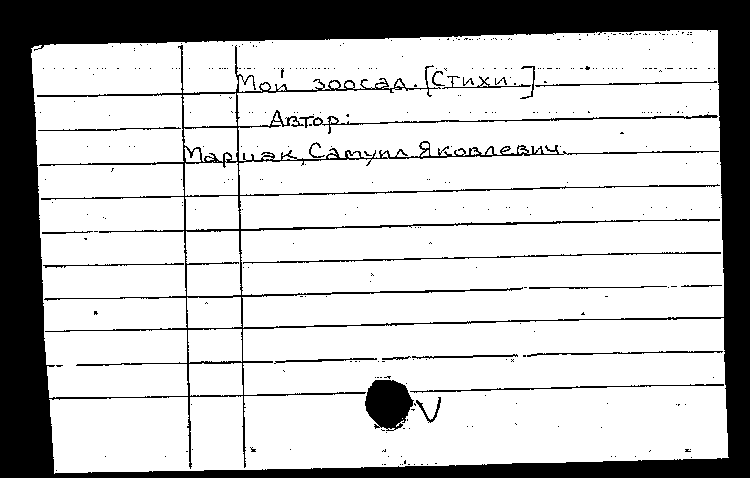 Мой зоосад. [Стихи..].
Автор:
Маршак, Самуил Яковлевич.
V